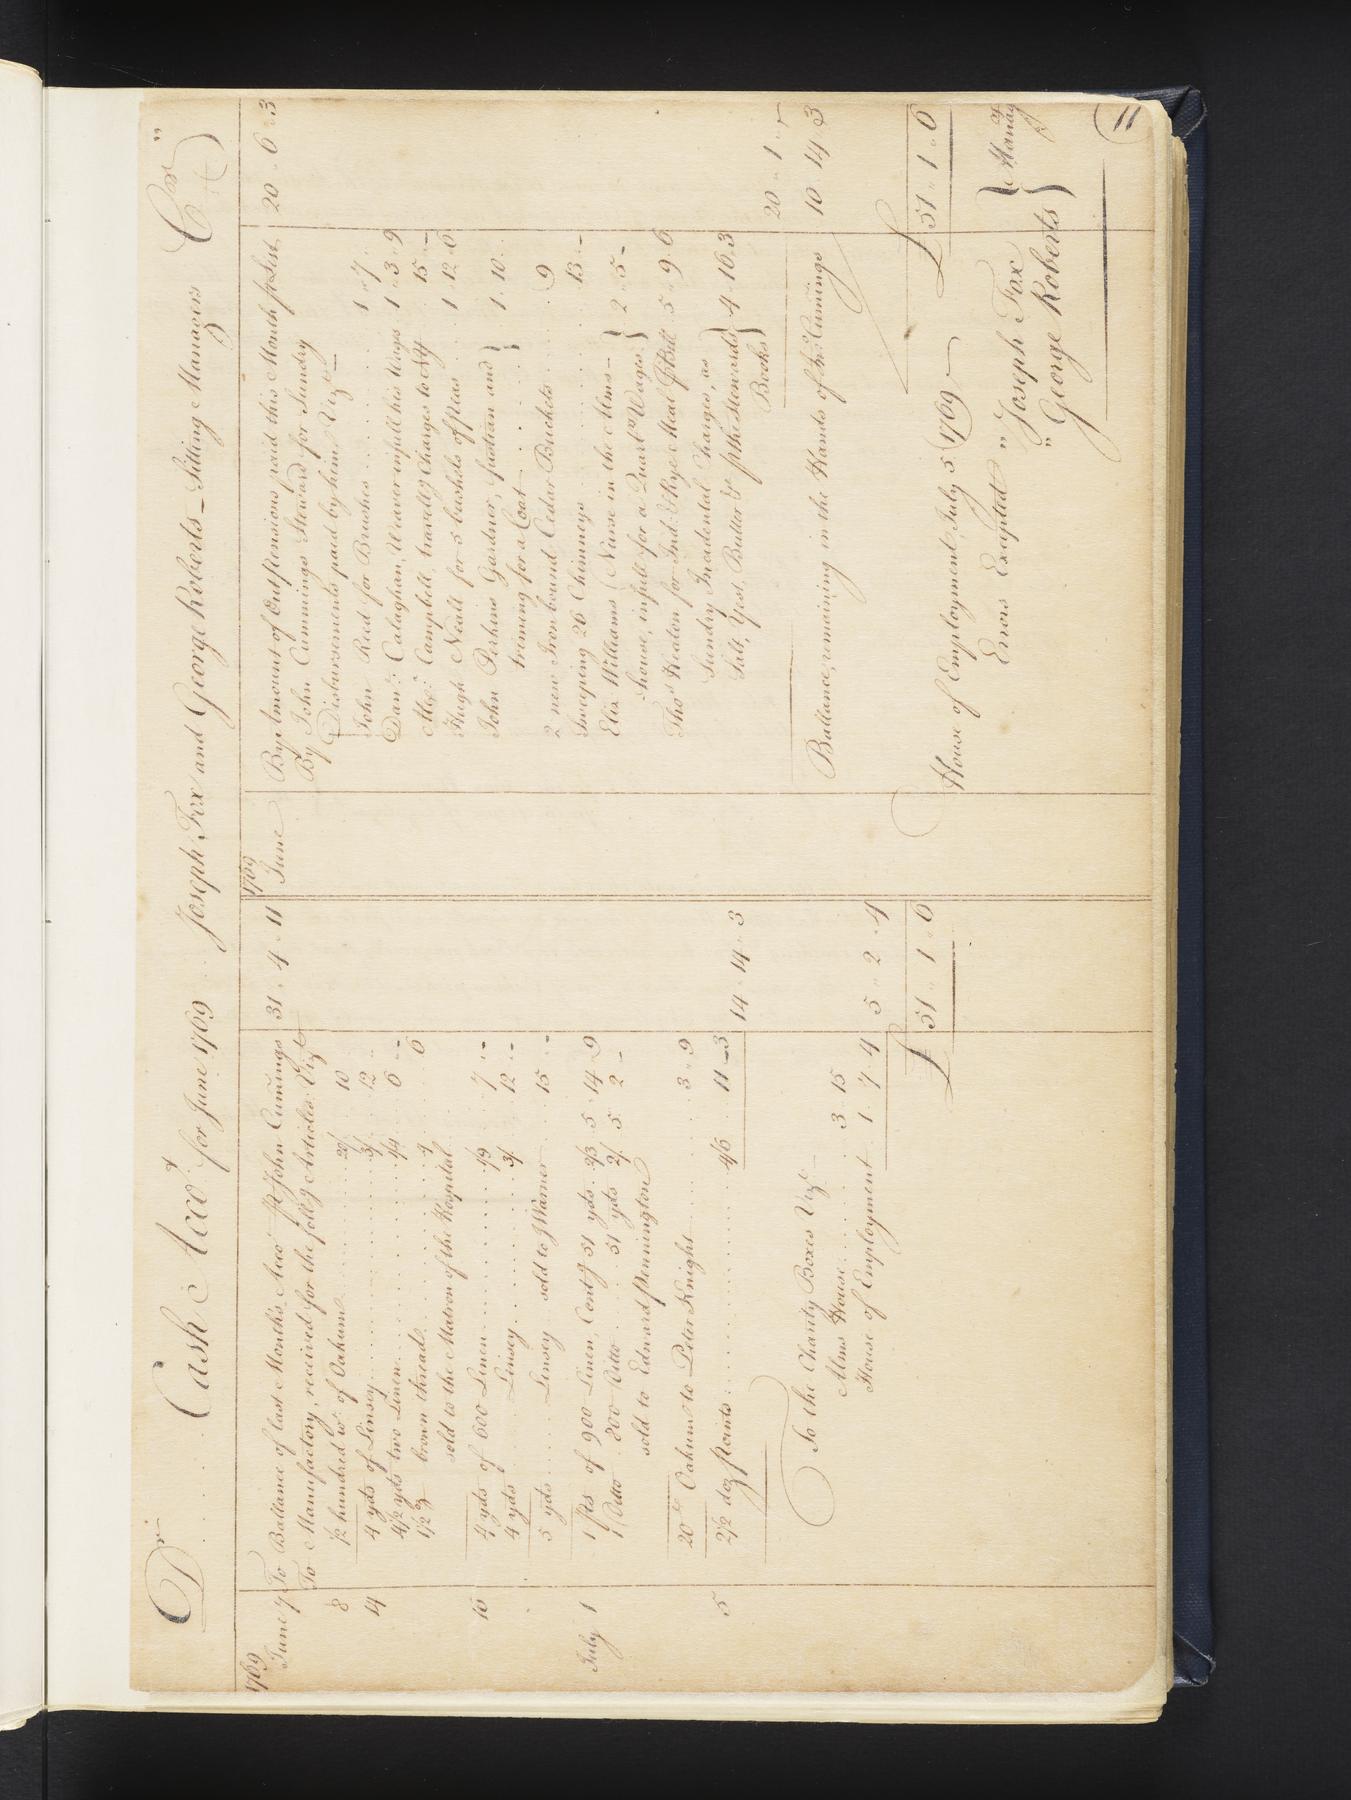 Dr. Cash Acct. for June 1769 Joseph Fox and George Roberts _ Sitting Managers Cr.
1769
June 7 To Ballance of last Month's Acct. pr. John Cumings 31 " 4 " 11
To Manufactory, received for the follg. Articles Vizt.
8 1/2 hundred wt. of Oakum 20/ 10
14 4 yds of Linsey 3/ 12 "
4 1/2 yds two Linen 1/4 6 " -
1 1/2 brown thread 4 6
sold to the Matron of the Hospital
16 4 yds of 600 Linen 1/9 7 " -
4 yds Linsey 3/ 12 " -
5 yds Linsey sold to J Warner 15 " -
July 1 1 ps of 900 Linen, Contg. 51 yds 2/3 5 " 14 " 9
1 Ditto 800 Ditto 51 yds 2/ 5 2 -
sold to Edward Pennington
20 Oakum to Peter Knight 3 " 9
5 2 1/2 doz. 4/6 11 - 3
14 " 14 " 3
To the Charity Boxes Vizt. _
Alms House 3 15
House of Employment 1 " 7 " 4
5 " 2 " 4
£ 51 " 1 " 6
1769
June By Amount of Outpensions paid this Month pr List 20 " 6 " 3
By John Cummings Steward for Sundry
Disbursements paid by him Vizt. _
John Reed for Brushes 1 " 7 "
Danl. Calaghan, Weaver in full his Wages 1 " 3 " 9
Campbell, travellg. Charges to NY 15 " -
Hugh Neall for 5 bushels of Peas 1 " 12 " 6
John Perkins Gardner, fustian and
triming for a Coat } 1 " 10 "
2 new Iron bound Cedar Buckets 9
Sweeping 26 Chimneys 13 " -
Eliz. Williams (Nurse in the Alms-
house, in full for a Quartrs. Wages } 2 " 5 -
Thos. Keaton for Ind: & Rye Meal pr Bill 5 " 9 " 6
Sundry Incedental Charges, as
Salt, Yest, Butter &c. pr the Stewards
Books } 4 " 16 " 3
20 " 1 " -
Ballance, remaining in the Hands of Cumings 10 " 14 " 3
£ 51 " 1 " 6
House of Employment, July 5 1769
Errors Excepted " Joseph Fox
" George Roberts } Manag
11